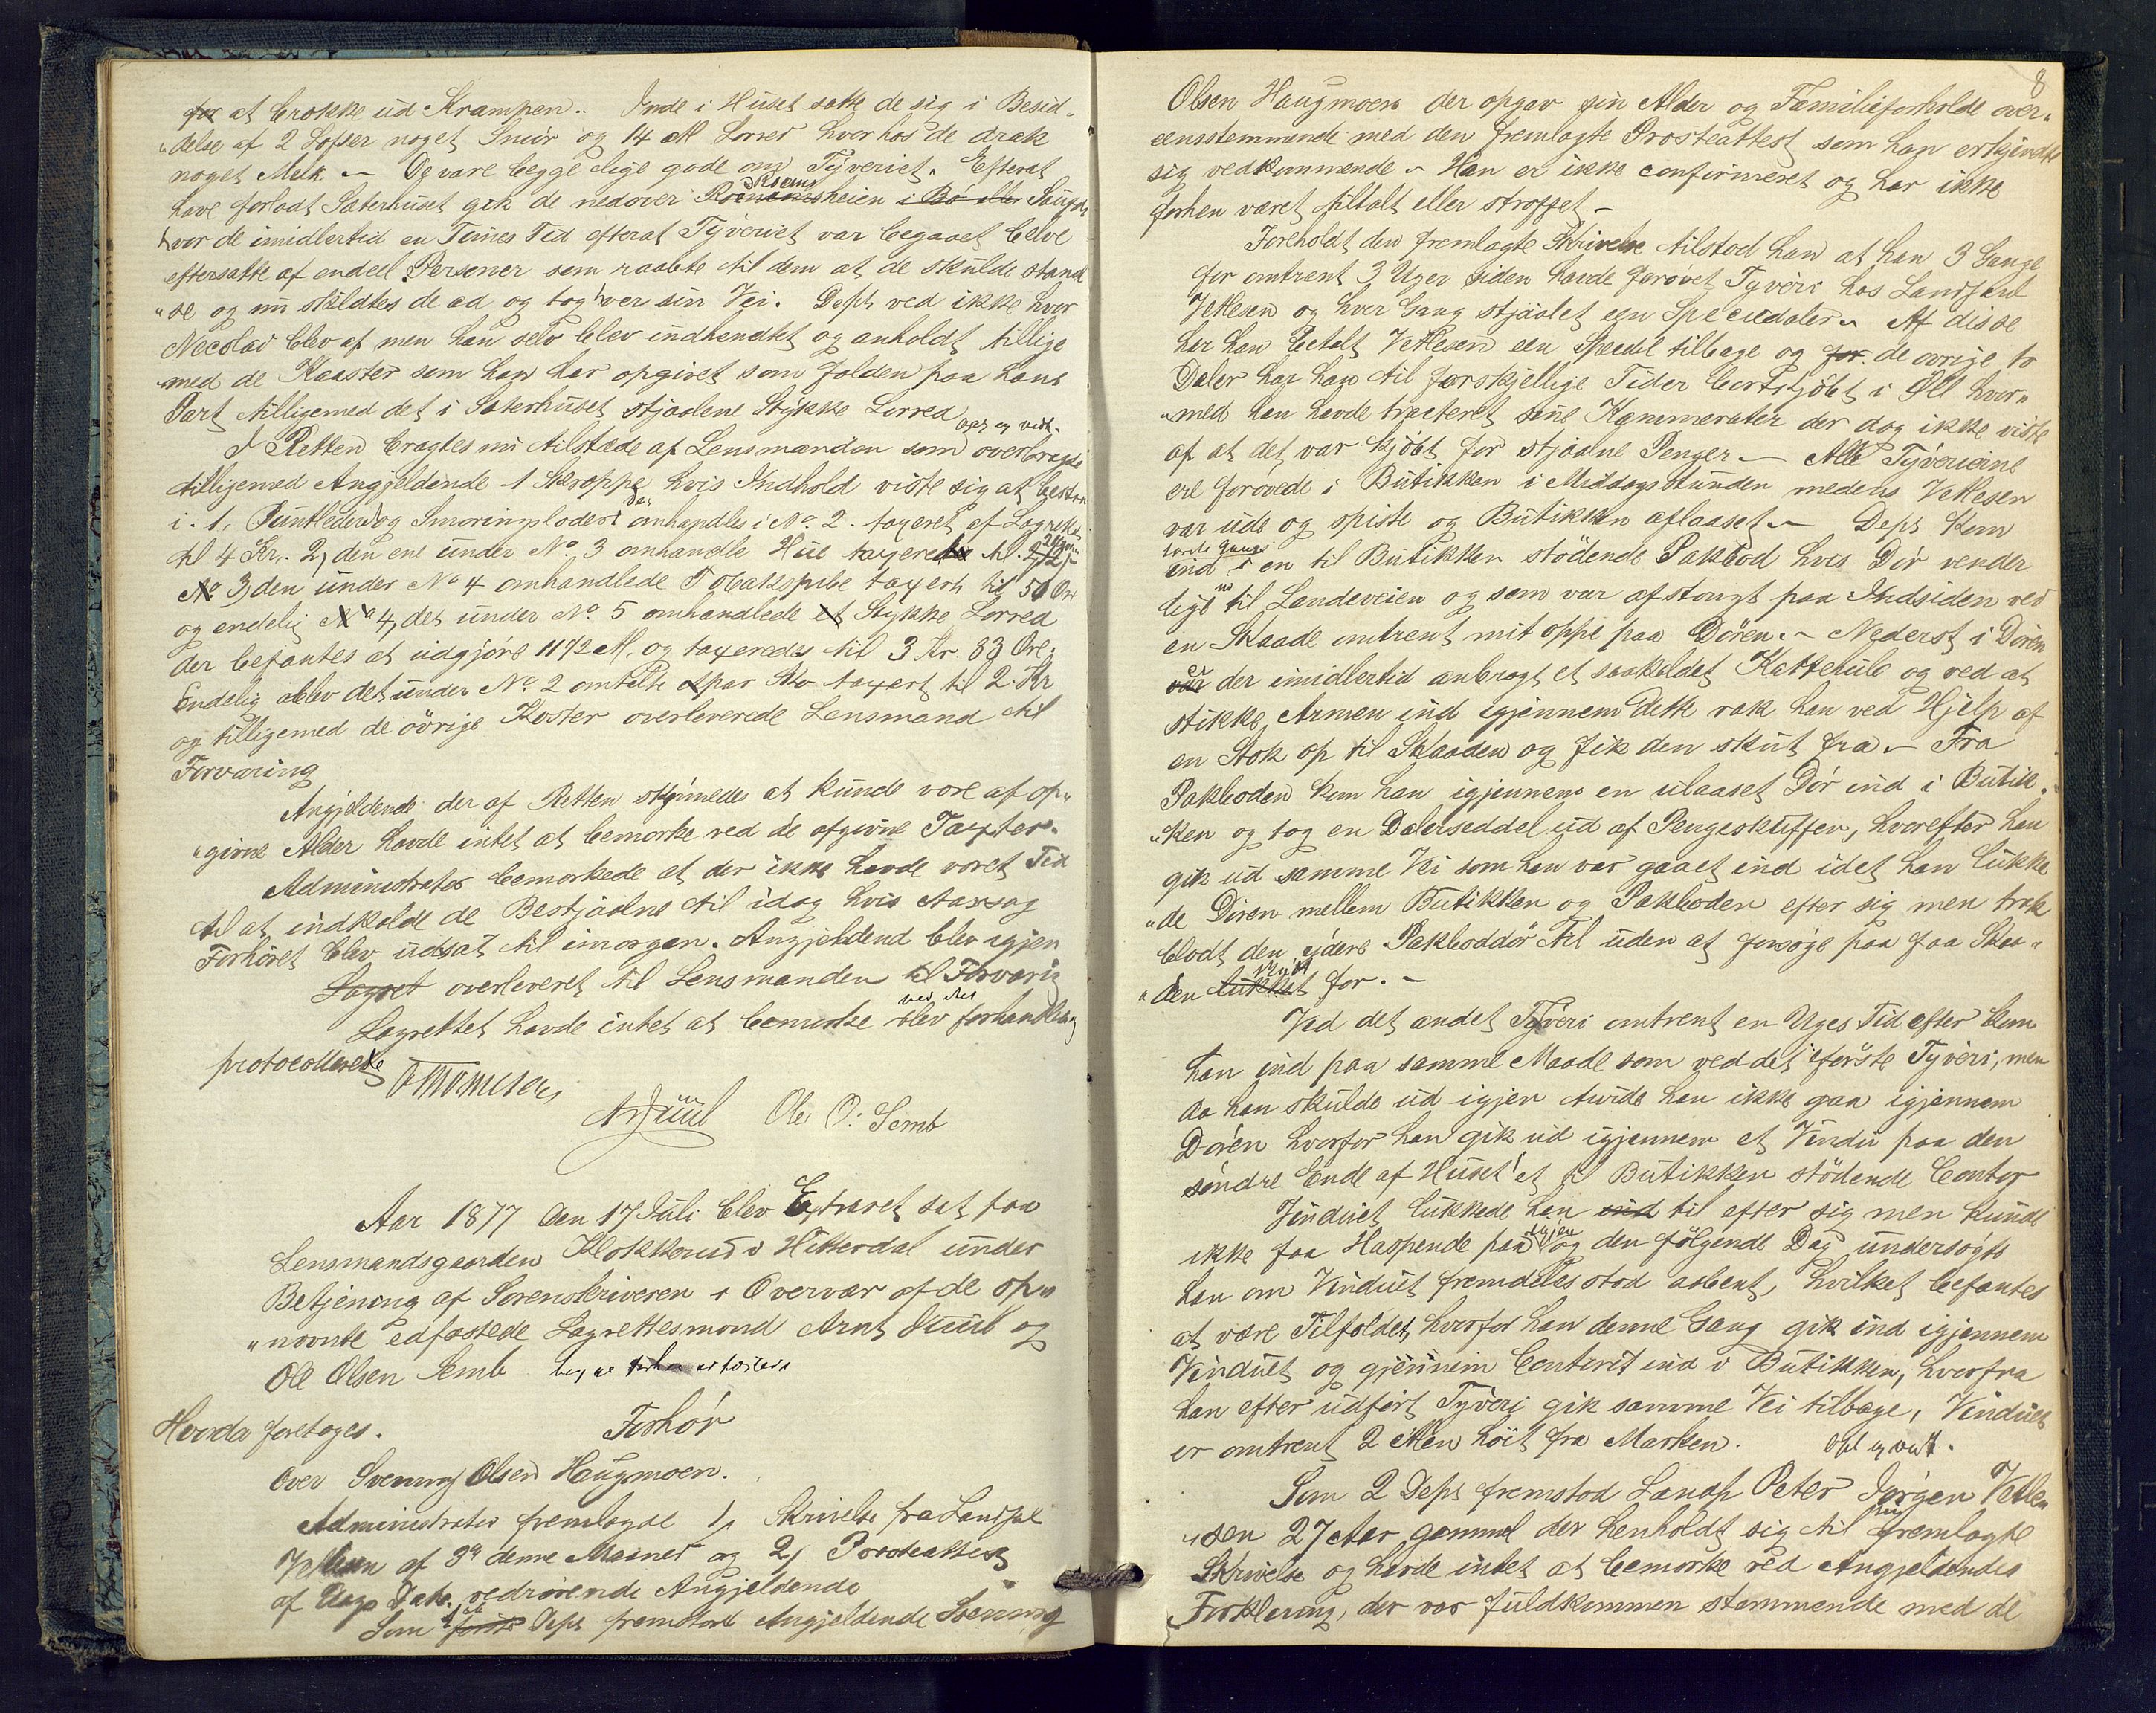 for at brække ud Krampen. Inde i Huset satte de sig i Besid„
„delse af 2 Lefser noget Smør og 14 Al Lerret hvorhos de drak
noget Melk. – De vare begge lige gode om Tyveriet. Efterat
have forladt Sæterhuset gik de nedover heien i Bø eller
hvor de imidlertid en Times Tid efterat Tyveriet var begaaet blve
eftersatte af endeel Personer som raabte til dem at de skulde stand
„se og nu skildtes de ad og tog hver sin Vei. Deps ved ikke hvor
Necolai blev af men han selv blev indhendtet og anholdt tillige
med de Kaaster som han har opgivet som falden paa hans
Part tilligemed det i Sæterhuset stjaalene Stykke Lerred Opl og vedt.
I Retten bragtes nu tilstæde af Lensmanden som overbragte
tilligemed Angjeldende 1 Skreppe hvis Indhold viste sig at bestaa
i. 1, og omhandles i No 2. taxeret af Lagrettet
til 4 Kr. 2, den ene under No 3 omhandle Hue taxeret til
No 3, den under No 4 omhandlede Tobakspibe taxert til 50 Øre
og endelig No 4, det under No 5 omhandlede et Stykke Lerred
der befantes at udgjøre 11 1/2 Al. og taxeredes til 3 Kr. 83 Øre.
Endelig blev det under No 2 omtalte par Sko taxert til 2. Kr
og tilligemed de øvrige Koster overleverede Lensmand til
Forvaring
Angjeldende der af Retten skjønnedes at kunde være af op„
„givne Alder havde intet at bemærke ved de afgivne Taxter.
Administrator bemærkede at der ikke havde været Tid
til at indkalde de Bestjaalne til idag hvis Aarsag
Forhøret blev udsat til imorgen. Angjeldend blev igjen
Lagret overleveret til Lensmanden til Forvarig
Lagrettet havde intet at bemærke ved det blev forhandling
protocollerede
AJuul Ole O: Semb
Aar 1877 den 17 Juli blev Extraret sat paa
Lensmandsgaarden Klokkerud i Hitterdal under
Betjening af Sorenskriveren i Overvær af de op„
„nævnte edfæstede Lagrettesmænd Arnt Juul og
Ole Olsen Semb
Hvorda foretoges.
Forhør
over Svenung Olsen Haugmoen.
Administrator fremlagde 1, Skrivelse fra Landhal
Vetlesen af 9de denne Maaned og 2, Præsteattest
af Dato vedrørende Angjeldende
Som første Deps fremstod Angjeldende Svenung
8
Olsen Haugmoen der opgav sin Alder og Familieforholde over„
eensstemmende med den fremlagte Præsteattest som han erkjendte
sig vedkommende. – Han er ikke confirmeret og har ikke
forhen været tiltalt eller straffet –
Foreholdt den fremlagte Skrivelse tilstod han at han 3 Gange
for omtrent 3 Uger siden havde forøvet Tyveri hos Landhal
Vetlesen og hver Gang stjaalet een Speciedaler. Af disse
har han betalt Vetlesen een Specidl tilbage og for de øvrige to
Daler har han til forskjellige Tider bortkjøbt i Øll hvor„
„med han havde tracteret sine Kammerater der dog ikke viste
af at det var kjøbt for stjaalne Penger. – Alle Tyverierne
ere forøvede i Butikken i Middagsstunden medens Vetlesen
var ude og spiste og Butikken aflaaset. – Deps kom
første Gang
ind i en til Butikken stødende Pakbod hvis Dør vender
lige ud til Landeveien og som var afstængt paa Indsiden ved
en Skaade omtrent mit oppe paa Døren. – Nederst i Døren
er der imidlertid anbragt et saakaldet Kattehule og ved at
stikke Armen ind igjennem dette rak han ved Hjelp af
en Stok op til Skaaden og fik den skut fra. – Fra
Pakboden kom han igjennem en ulaaset Dør ind i Butik.
„ken og tog en Dalerseddel ud af Pengeskuffen, hvorefter han
gik ud samme Vei som han var gaaet ind idet han lukke
„de Døren mellem Butikken og Pakboden efter sig men trak
blodt den ydere Pakboddør til uden at forsøge paa faa Skaa„
„den lukket skutt for. –
Ved det andet Tyveri omtrent en Uges Tid efter kom
han ind paa samme Maade som ved det første Tyveri, men
da han skulde ud igjen turde han ikke gaa igjennem
Døren hvorfor han gik ud igjennem et Vindu paa den
søndre Ende af Huset i et til Butikken stødende Contor
Vinduet lukkede han ind til efter sig men kunde
ikke faa Haspende paa igjen og den følgende Dag undersøgte
han om Vinduet fremdeles stod aabent, hvilket befantes
at være Tilfældet hvorfor han denne Gang gik ind igjennem
Vinduet og gjennem Contoret ind i Butikken, hvorfra
han efter udført Tyveri gik samme Vei tilbage, Vinduet
er omtrent 2 Alen høit fra Marken. Opl og vedt.
Som 2 Deps fremstod Landh Peter Jørgen Vetle
„sen 27 Aar gammel der henholdt sig til sin fremlagte
Skrivelse og havde intet at bemærke ved Angjeldendes
Forklaring, der var fuldkommen stemmende med de